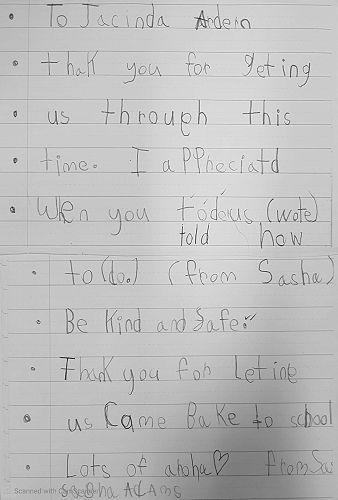 To Jacinda Ardern
thak you for geting
us through this
time. I appreciatd
When you tóderus (wote)
told how
to (do.) (from Sasha)
Be Kind and Safe.
Thank you for leting
us Came Bake to school
Lots of aroha♡ from Sa
sasha AdAms
Scanned with CamScanner